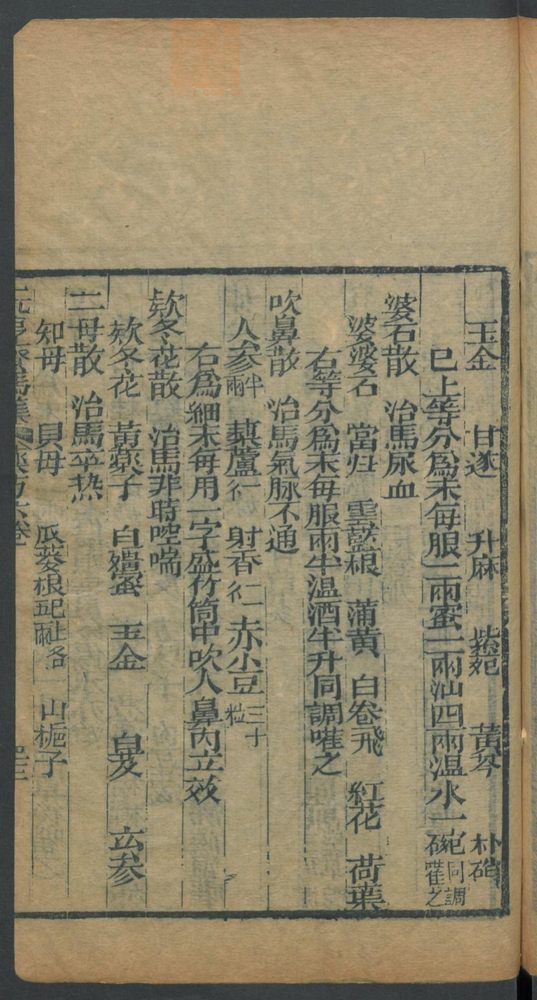 玉金 甘遂 升麻 紫菀 黄芩 朴硝
已上等分為末每服二兩蜜二兩油四兩温水一碗同調嚾之
婆石散 治馬尿血
婆婆石 當归 藍根 蒲黄 白卷飛 紅花 荷葉
右等分為末每服兩半温酒半升同調嚾之
吹鼻散 治馬氣脉不通
人参半兩 藜蘆 射香 赤小豆三十粒
右為細末每用一字盛竹筒中吹入鼻内立效
欸冬花散 治馬非時啌喘
欸冬花 黄藥子 白殭蚕 玉金 白芨 玄参
二母散 治馬卒热
知母 貝母 瓜蒌根 山梔子